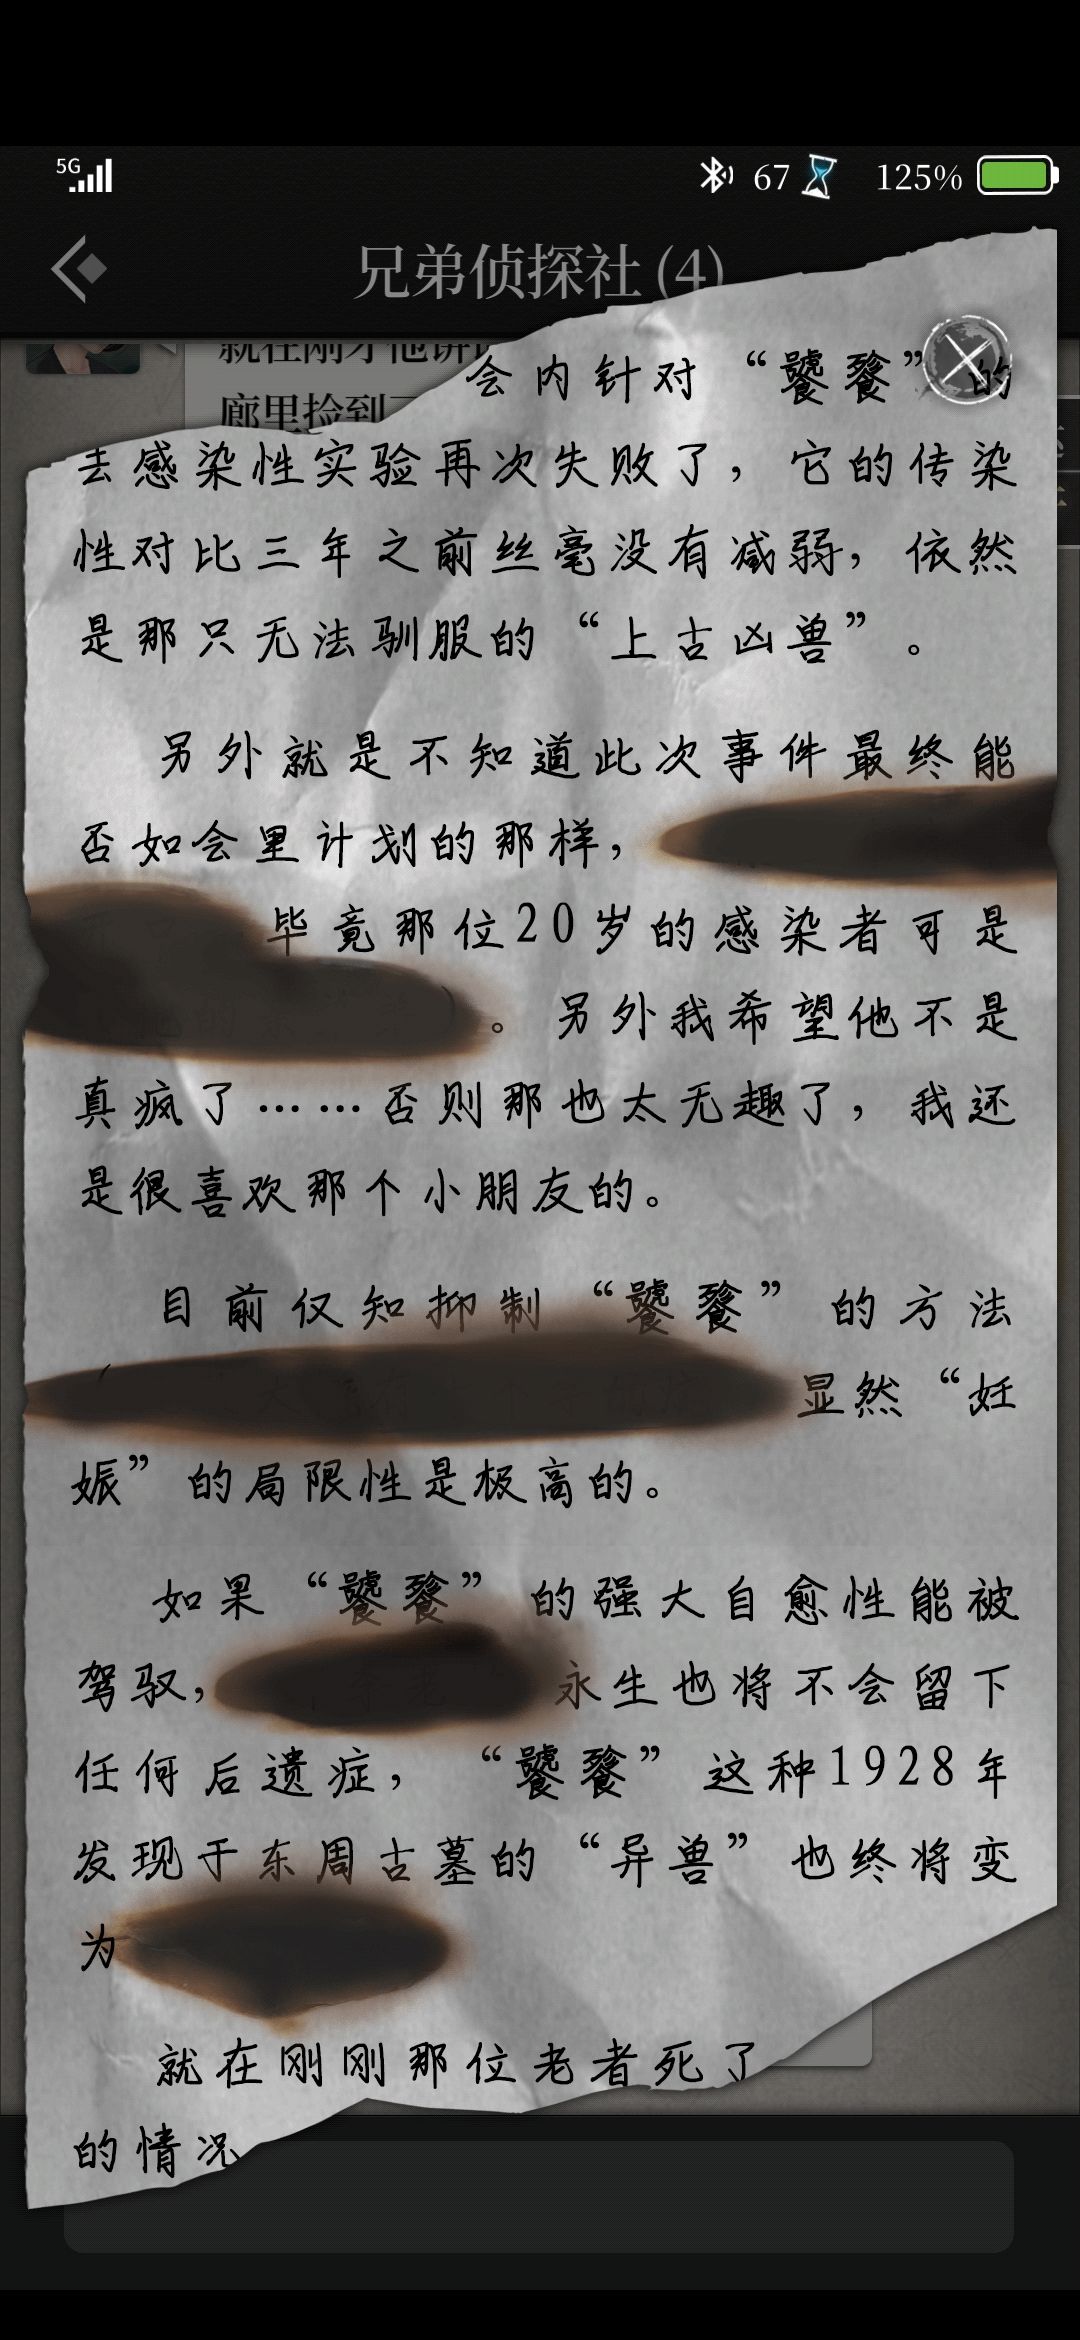 5G
67
125%
兄弟侦探社 (4)
就在刚才他讲
廊里捡到
会内针对“饕餮”的
去感染性实验再次失败了，它的传染
性对比三年之前丝毫没有减弱，依然
是那只无法驯服的“上古凶兽”。
另外就是不知道此次事件最终能
否如会里计划的那样，
毕竟那位20岁的感染者可是
。另外我希望他不是
真疯了……否则那也太无趣了，我还
是很喜欢那个小朋友的。
目前仅知抑制“饕餮”的方法
显然“妊
娠”的局限性是极高的。
如果“饕餮”的强大自愈性能被
驾驭，永生也将不会留下
任何后遗症，“饕餮”这种1928年
发现于东周古墓的“异兽”也终将变
为
就在刚刚那位老者死了
的情况